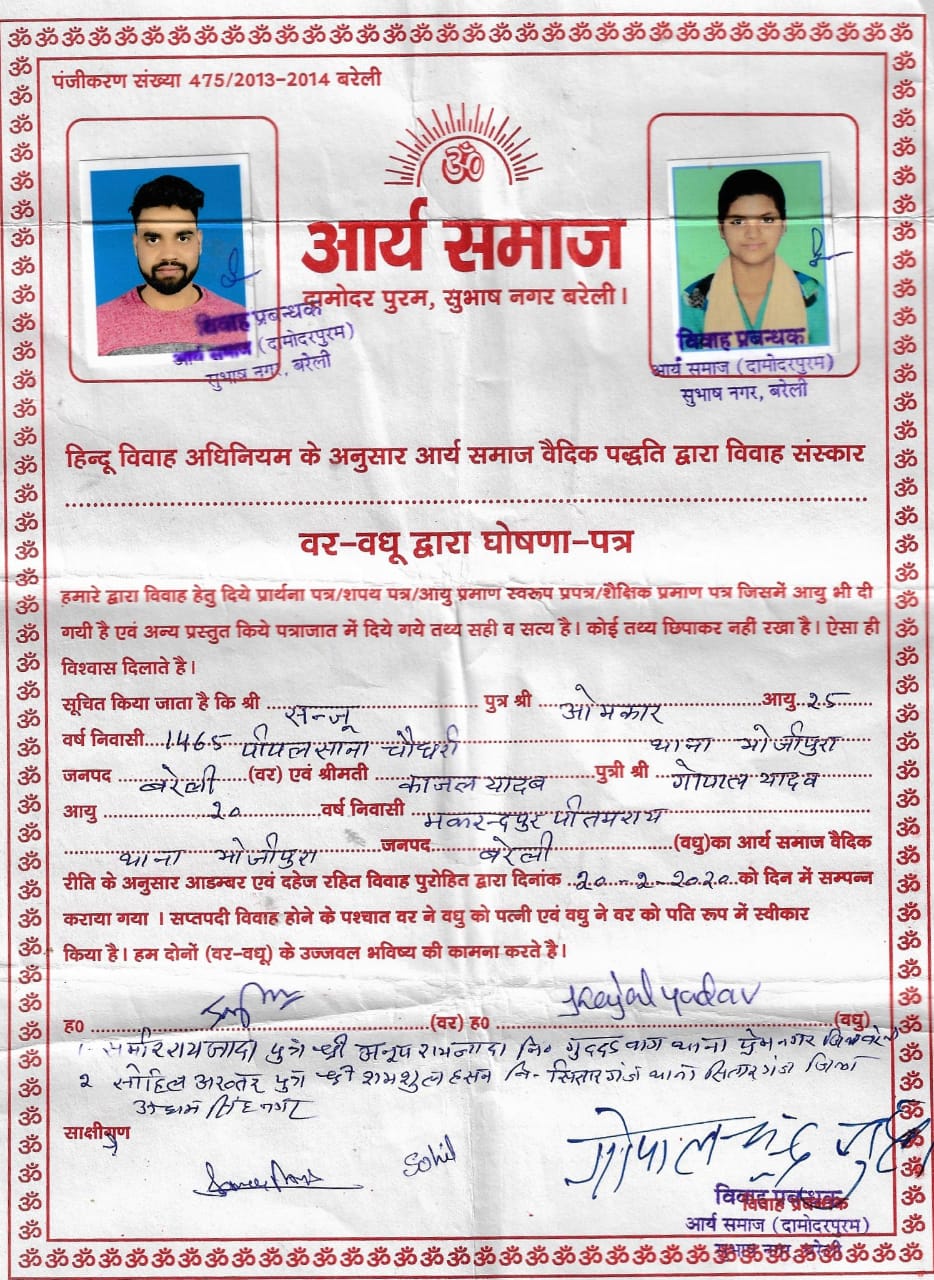 पंजीकरण संख्या 475/2013-2014 बरेली
ॐ
आर्य समाज
दामोदर पुरम, सुभाष नगर बरेली।
विवाह प्रबन्धक
आर्य समाज (दामोदरपुरम)
सुभाष नगर, बरेली
विवाह प्रबन्धक
आर्य समाज (दामोदरपुरम)
सुभाष नगर, बरेली
हिन्दू विवाह अधिनियम के अनुसार आर्य समाज वैदिक पद्धति द्वारा विवाह संस्कार
वर-वधू द्वारा घोषणा-पत्र
हमारे द्वारा विवाह हेतु दिये प्रार्थना पत्र/शपथ पत्र/आयु प्रमाण स्वरूप प्रपत्र/शैक्षिक प्रमाण पत्र जिसमें आयु भी दी
गयी है एवं अन्य प्रस्तुत किये पत्राजात में दिये गये तथ्य सही व सत्य है। कोई तथ्य छिपाकर नहीं रखा है। ऐसा ही
विश्वास दिलाते है।
सूचित किया जाता है कि श्री सन्जू पुत्र श्री ओमकार आयु 25
वर्ष निवासी 1465 पीपलसाना चौधरी थाना भोजीपुरा
जनपद बरेली (वर) एवं श्रीमती काजल यादव पुत्री श्री गोपाल यादव
आयु 20 वर्ष निवासी मकरन्दपुर पीतमराय
थाना भोजीपुरा जनपद बरेली (वधु)का आर्य समाज वैदिक
रीति के अनुसार आडम्बर एवं दहेज रहित विवाह पुरोहित द्वारा दिनांक 20-2-2020 को दिन में सम्पन्न
कराया गया । सप्तपदी विवाह होने के पश्चात वर ने वधु को पत्नी एवं वधु ने वर को पति रूप में स्वीकार
किया है। हम दोनों (वर-वधू) के उज्जवल भविष्य की कामना करते है।
ह0 (वर) ह0 Kajal yadav (वधु)
1. समीर रायजादा पुत्र श्री अनूप रायजादा नि० गुददड़ बाग थाना प्रेमनगर जिला बरेली
2 सोहिल अख्तर पुत्र श्री शमशुल हसन नि- सितारगंज थाना सितारगंज जिला
उधम सिंह नगर
साक्षीगण
Sohil
गोपाल चन्द्र
विवाह प्रबन्धक
आर्य समाज (दामोदरपुरम)
सुभाष नगर, बरेली